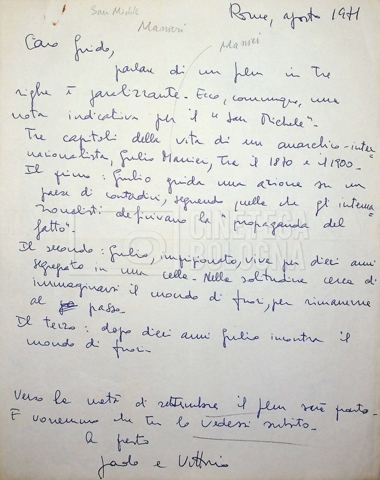 San Michele
Manieri
Manieri
Roma, agosto 1971
Caro Guido,
parlare di un film in tre
righe è paralizzante. Ecco, comunque, una
nota indicativa per il "San Michele".
Tre capitoli della vita di un anarchico-inter-
nazionalista, Giulio Manieri, tra il 1870 e il 1900.
Il primo: Giulio guida una azione su un
paese di contadini, seguendo quella che gli interna-
zionalisti definivano la "propaganda del
fatto".
Il secondo: Giulio, imprigionato, vive per dieci anni
segregato in una cella. Nella solitudine cerca di
immaginarsi il mondo di fuori, per rimanerne
al passo.
Il terzo: dopo dieci anni Giulio incontra il
mondo di fuori.
Verso la metà di settembre il film sarà pronto.
E vorremmo che tu lo vedessi subito.
A presto
Paolo e Vittorio
CINETECA
BOLOGNA